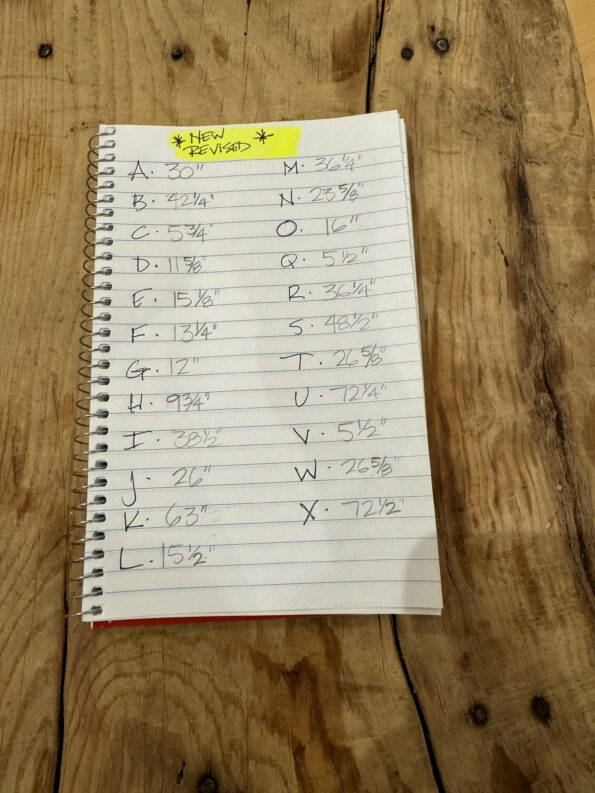 * NEW *
REVISED
A. 30"
B. 42 1/4"
C. 5 3/4"
D. 11 5/8"
E. 15 1/8"
F. 13 1/4"
G. 12"
H. 9 3/4"
I. 38 1/2"
J. 26"
K. 63"
L. 15 1/2"
M. 36 1/4"
N. 23 5/8"
O. 16"
Q. 5 1/2"
R. 36 1/4"
S. 48 1/2"
T. 26 5/8"
U. 72 1/4"
V. 5 1/2"
W. 26 5/8"
X. 72 1/2"